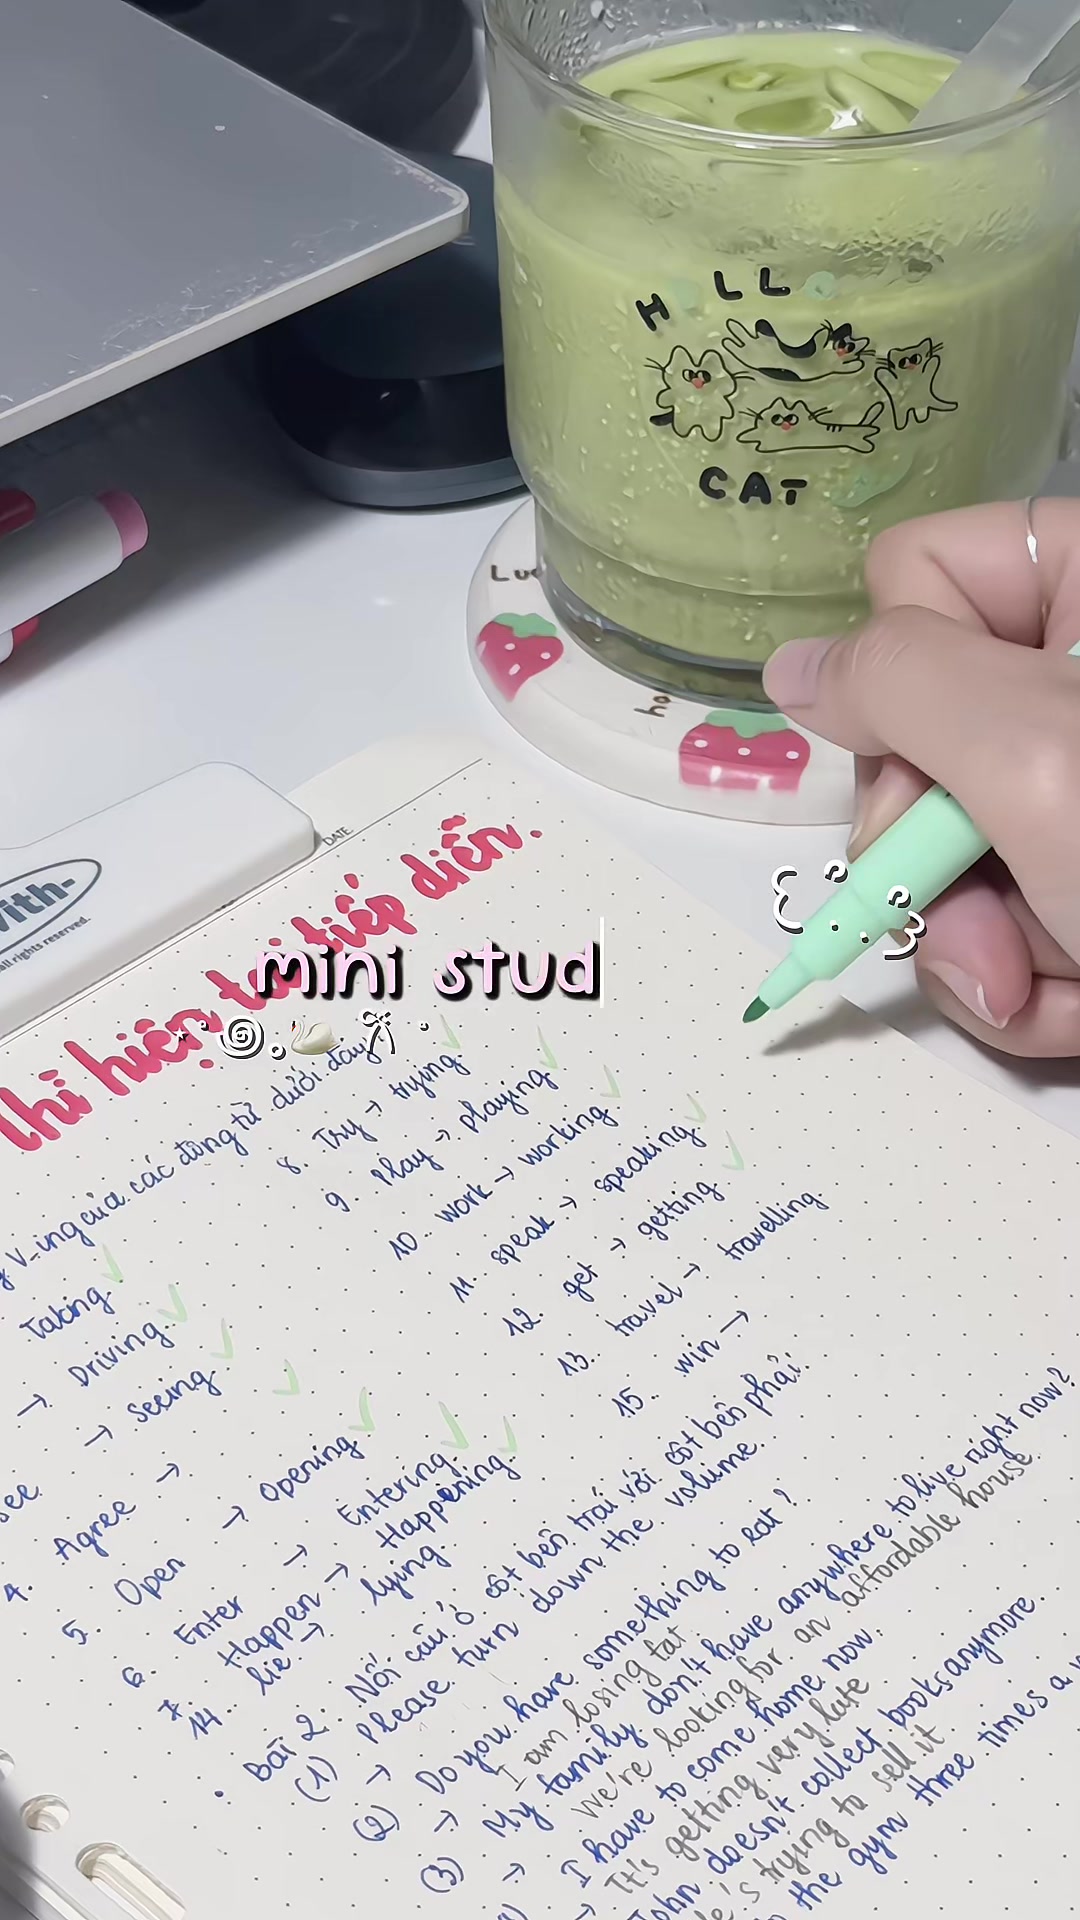 H LL
CAT
Luc
ho
DATE
with-
all rights reserved.
Thì hiện tại tiếp diễn.
mini stud
V-ing của các động từ dưới đây
Taking
→ Driving
see → Seeing
4. Agree →
5. Open → Opening
6. Enter → Entering
7. Happen → Happening
14. lie → lying
8. Try → trying
9. Play → playing
10. work → working
11. speak → speaking
12. get → getting
13. travel → travelling
15. win →
Bài 2. Nối câu ở cột bên trái với cột bên phải.
(1) Please turn down the volume.
→
(2) Do you have something to eat?
→ I am losing fat
(3) My family don't have anywhere to live right now?
→ We're looking for an affordable house
I have to come home now.
→ It's getting very late
John doesn't collect books anymore.
He's trying to sell it
the gym three times a